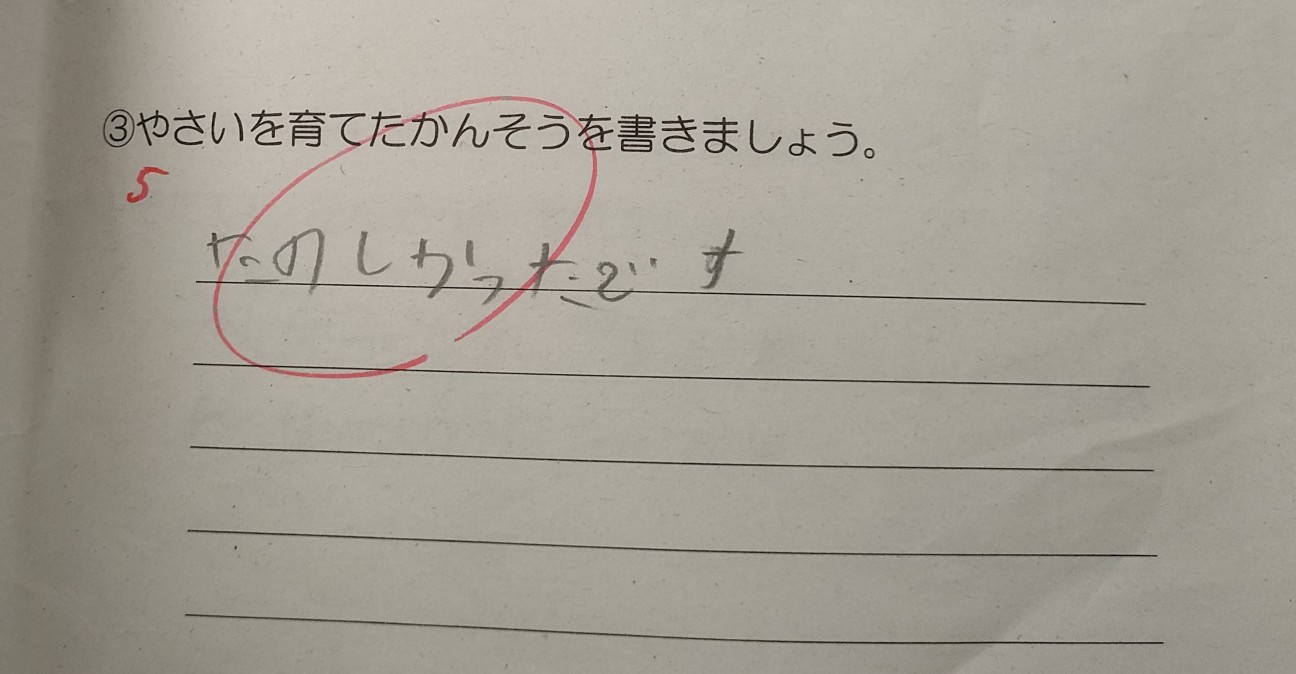 ③やさいを育てたかんそうを書きましょう。
5
たのしかったです